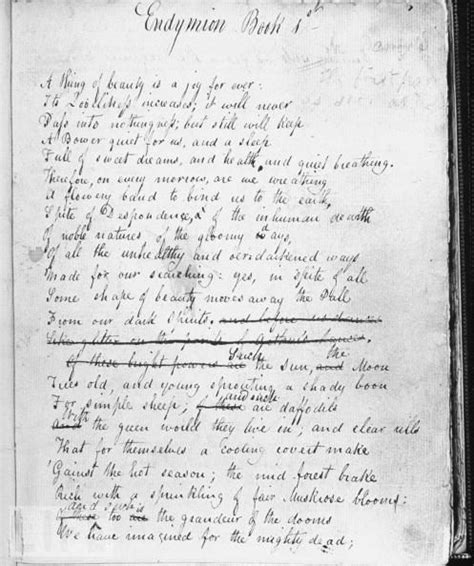 Endymion Book 1st
A thing of beauty is a joy for ever:
Its Loveliness increases; it will never
Pass into nothingness; but still will keep
A Bower quiet for us, and a sleep
Full of sweet dreams, and health, and quiet breathing.
Therefore, on every morrow, are we wreathing
A flowery band to bind us to the earth,
Spite of Despondence, of the inhuman dearth
Of noble natures of the gloomy days,
Of all the unhealthy and oer-darkened ways
Made for our searching: yes, in spite of all
Some shape of beauty moves away the Pall
From our dark Spirits. and before us dances
Like glitter on the points of Arthur's Lances.
Of these bright powers are Such the Sun, and the Moon
Trees old, and young sprouting a shady boon
For simple sheep; of these and such are daffodils
and With the green world they live in; and clear rills
That for themselves a cooling covert make
'Gainst the hot season; the mid forest brake
Rich with a sprinkling of fair Muskrose blooms:
and Such is
too are the grandeur of the dooms
We have imagined for the mighty dead;